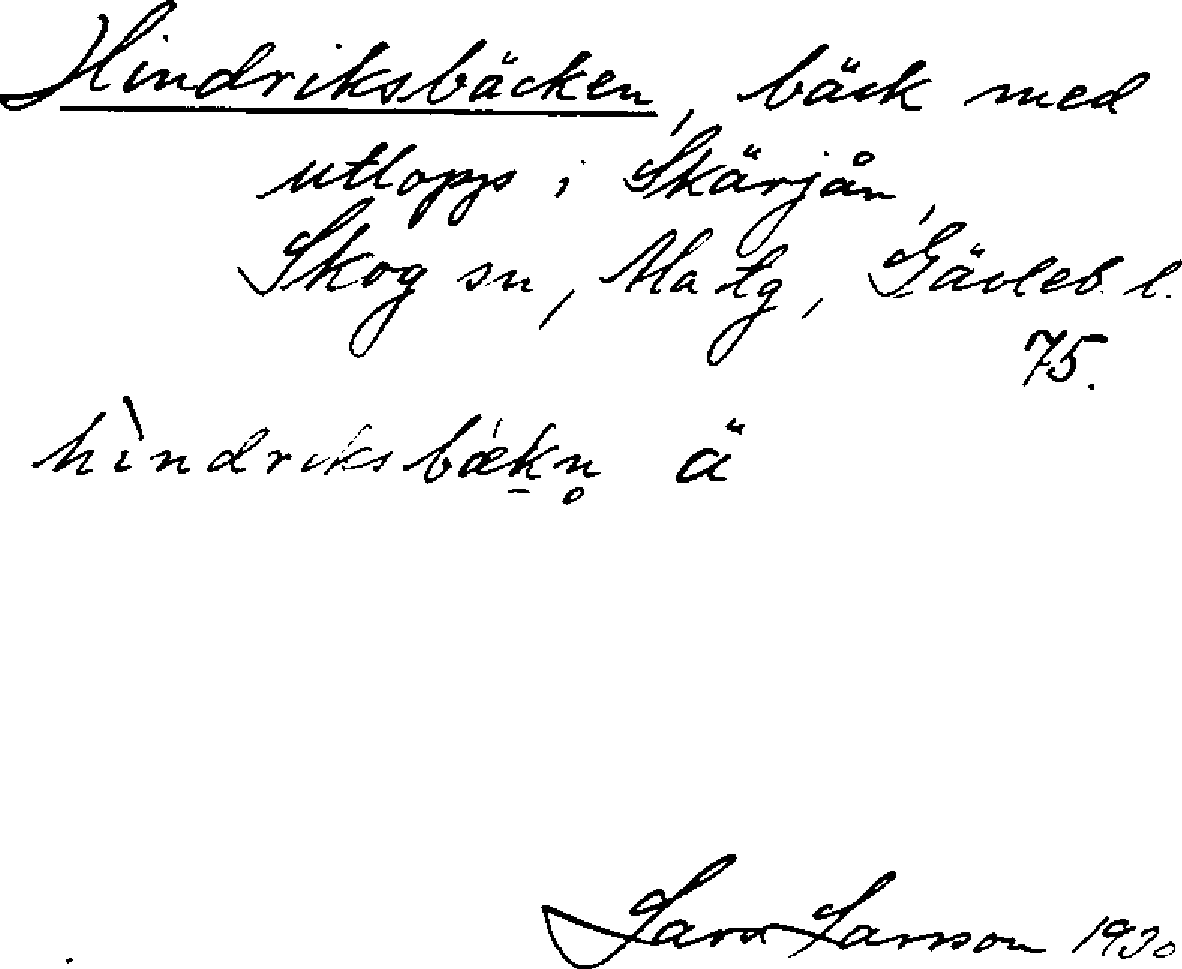 Hindriksbäcken, bäck med
utlopp i Skärjån,
Skog sn, Ala tg, Gävleb. l.
75.
hìndriksbǽk̠n̥ ä
Lars Larsson 1930